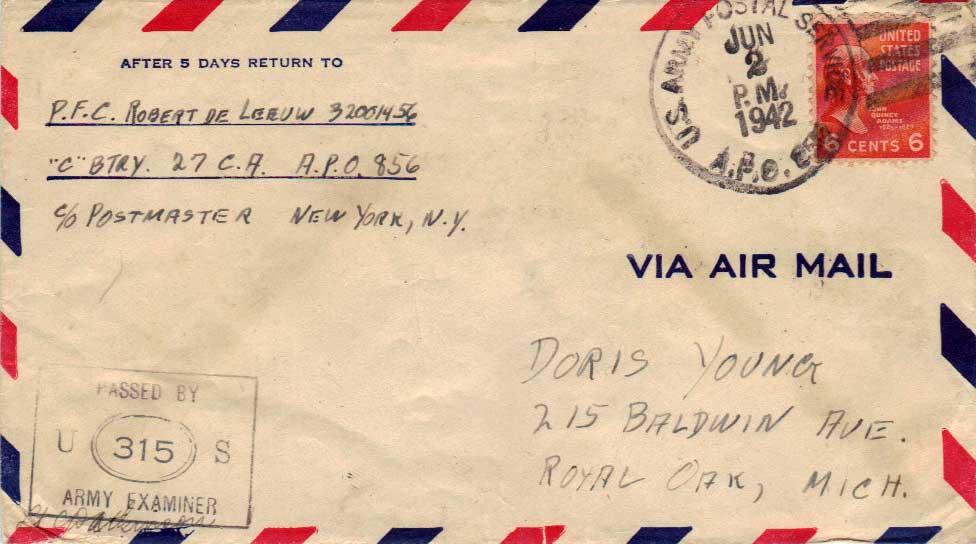 AFTER 5 DAYS RETURN TO
P.F.C. ROBERT DE LEEUW 32001456
"C" BTRY. 27 C.A. A.P.O. 856
c/o POSTMASTER NEW YORK, N.Y.
U.S. ARMY POSTAL SERVICE
JUN
2
P.M.
1942
A.P.O.
UNITED
STATES
POSTAGE
JOHN
QUINCY
ADAMS
6 CENTS 6
VIA AIR MAIL
DORIS YOUNG
215 BALDWIN AVE.
ROYAL OAK, MICH.
PASSED BY
U 315 S
ARMY EXAMINER